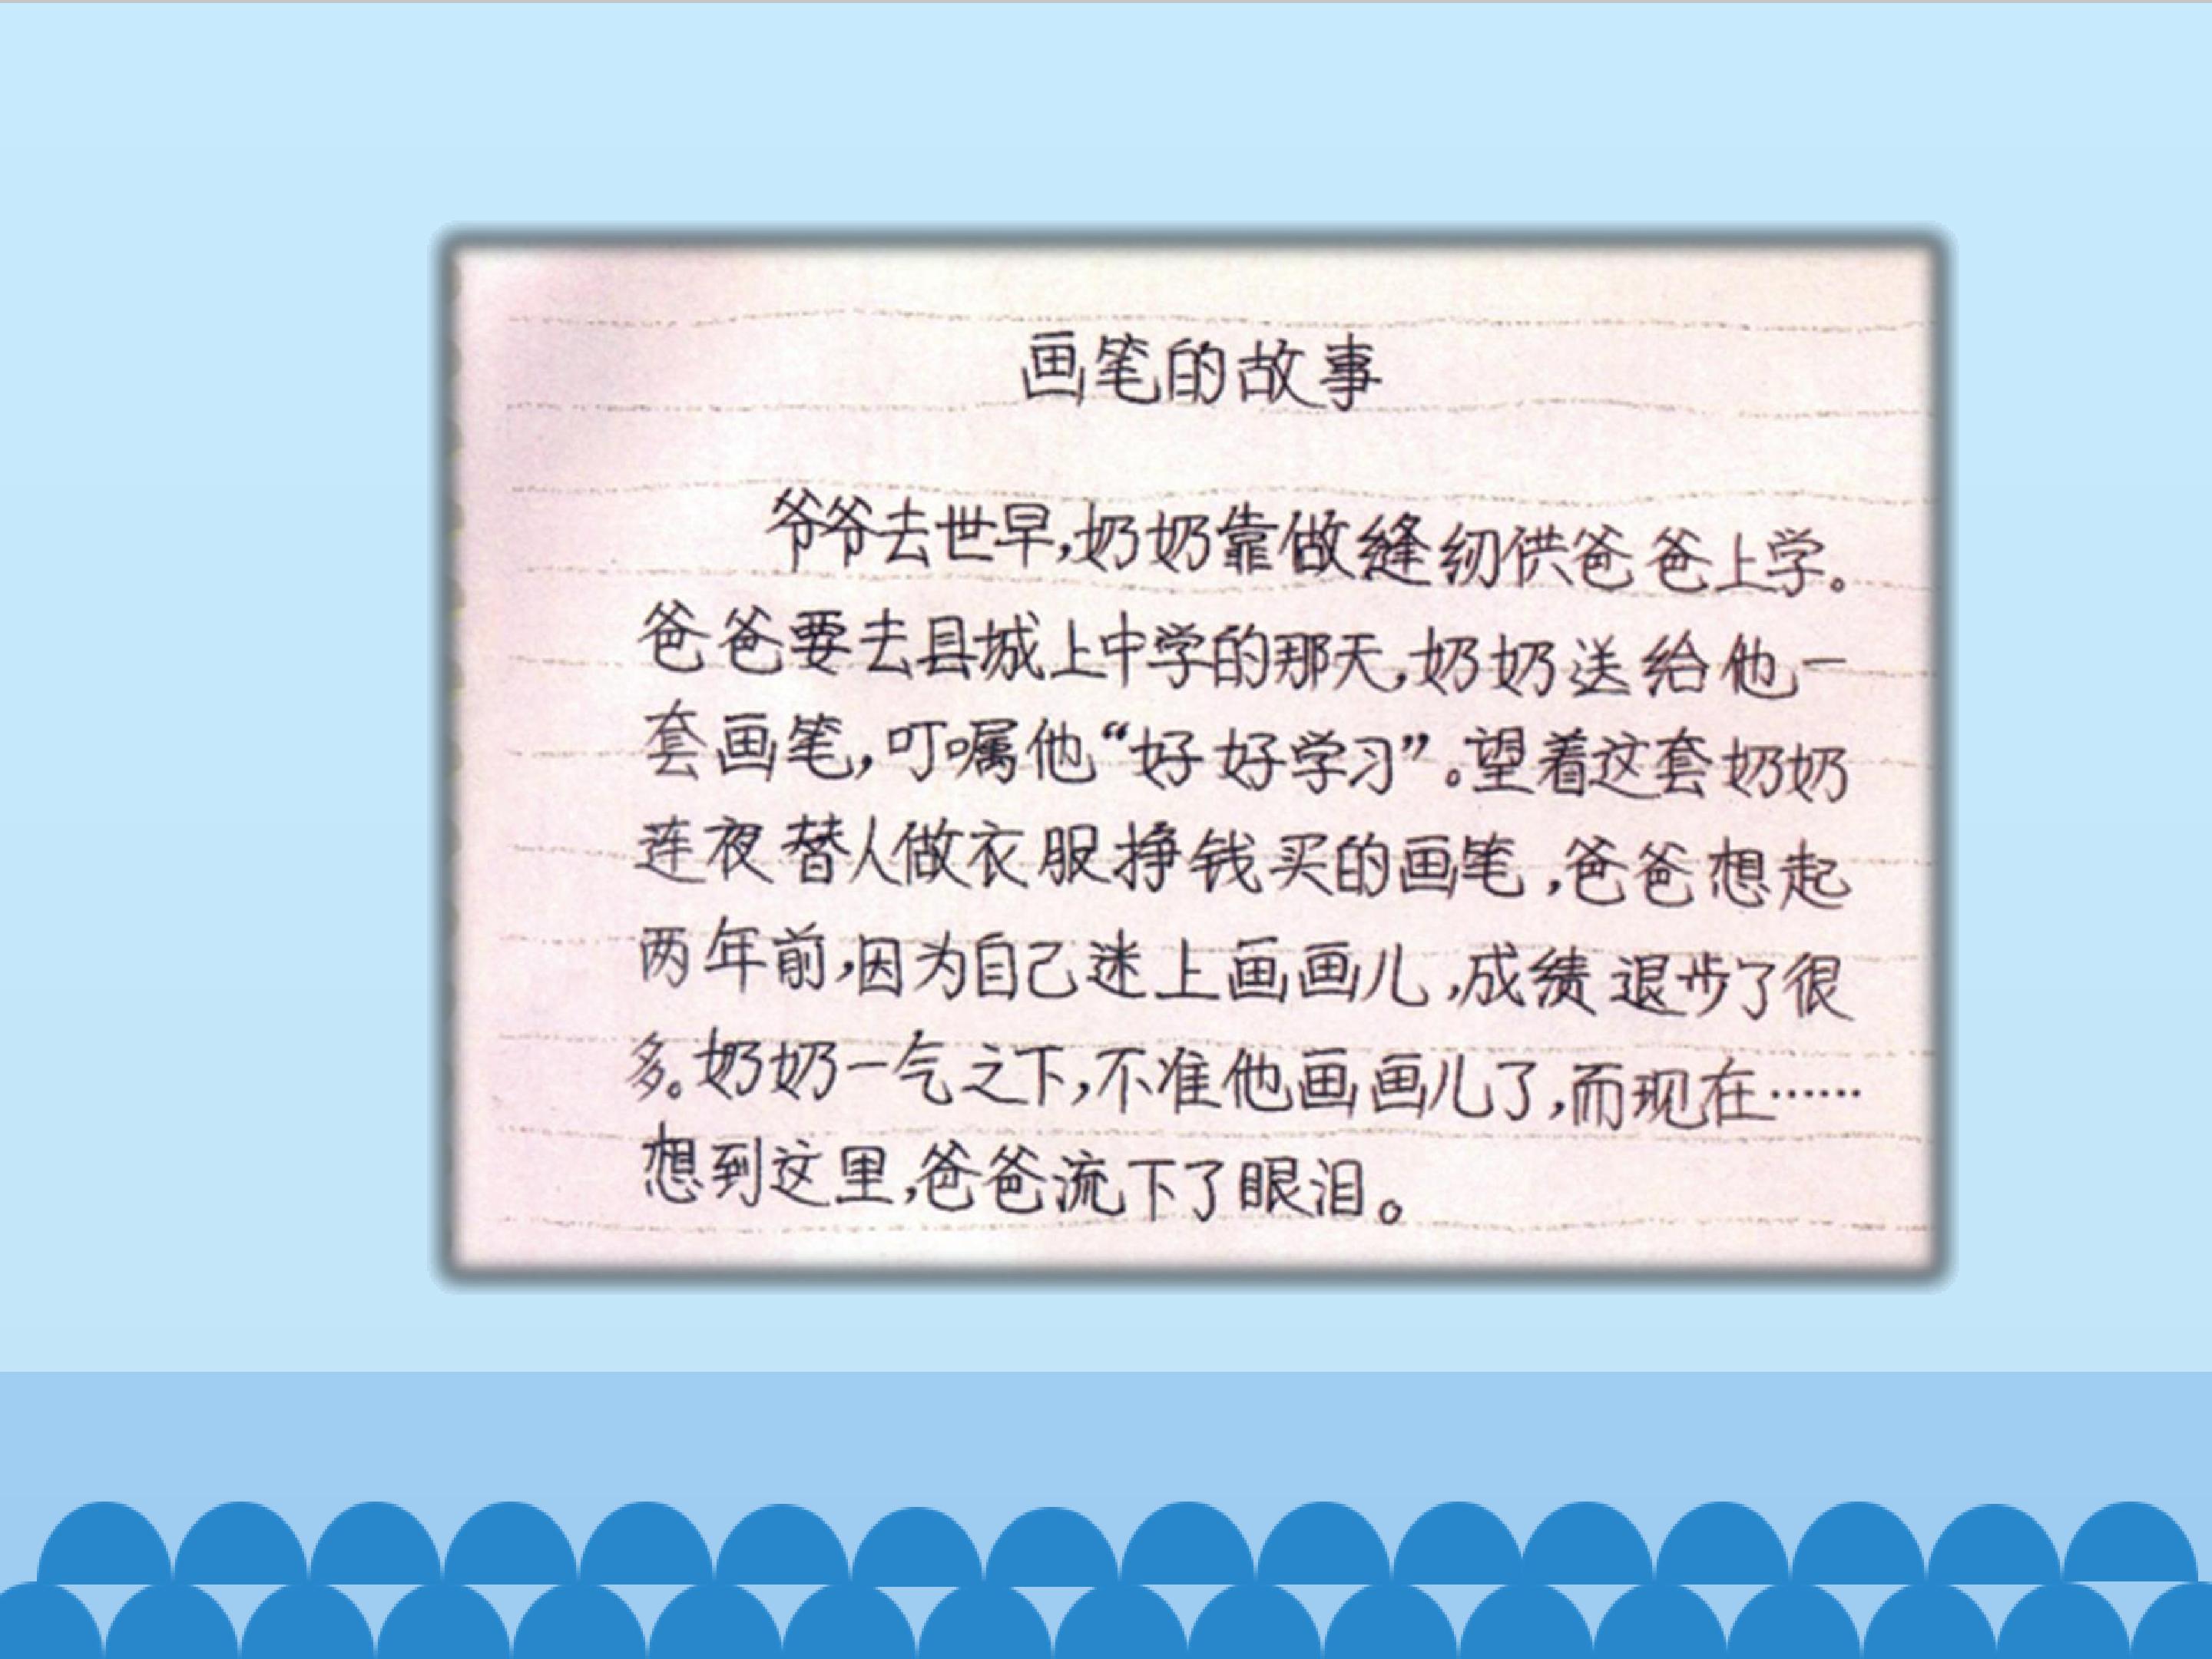 画笔的故事
爷爷去世早,奶奶靠做缝纫供爸爸上学。
爸爸要去县城上中学的那天,奶奶送给他一
套画笔,叮嘱他“好好学习”。望着这套奶奶
连夜替人做衣服挣钱买的画笔,爸爸想起
两年前,因为自己迷上画画儿,成绩退步了很
多。奶奶一气之下,不准他画画儿了,而现在……
想到这里,爸爸流下了眼泪。